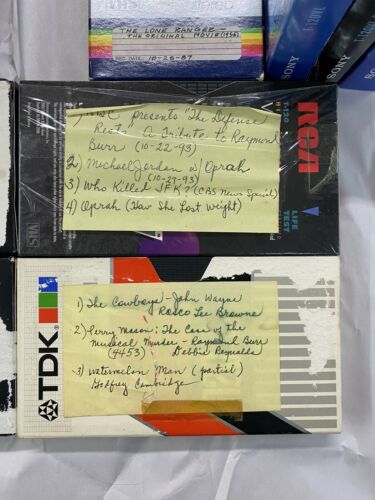 THE LONE RANGER -
THE ORIGINAL MOVIE (1956)
REC. DATE: 10-26-87
SONY
SONY
T-120
RCA
VHS
LIFE
TEST
presents "The Defense
Rests - A Tribute to Raymond
Burr (10-22-93)
2) Michael Jordan w/ Oprah
(10-29-93)
3) Who Killed JFK? (CBS News Special)
4) Oprah (How She Lost Weight)
TDK
1) The Cowboys - John Wayne
Rosco Lee Browne
2) Perry Mason: The Case of the
Musical Murder - Raymond Burr
(4453) Debbie Reynolds
3) Watermelon Man (partial)
Godfrey Cambridge